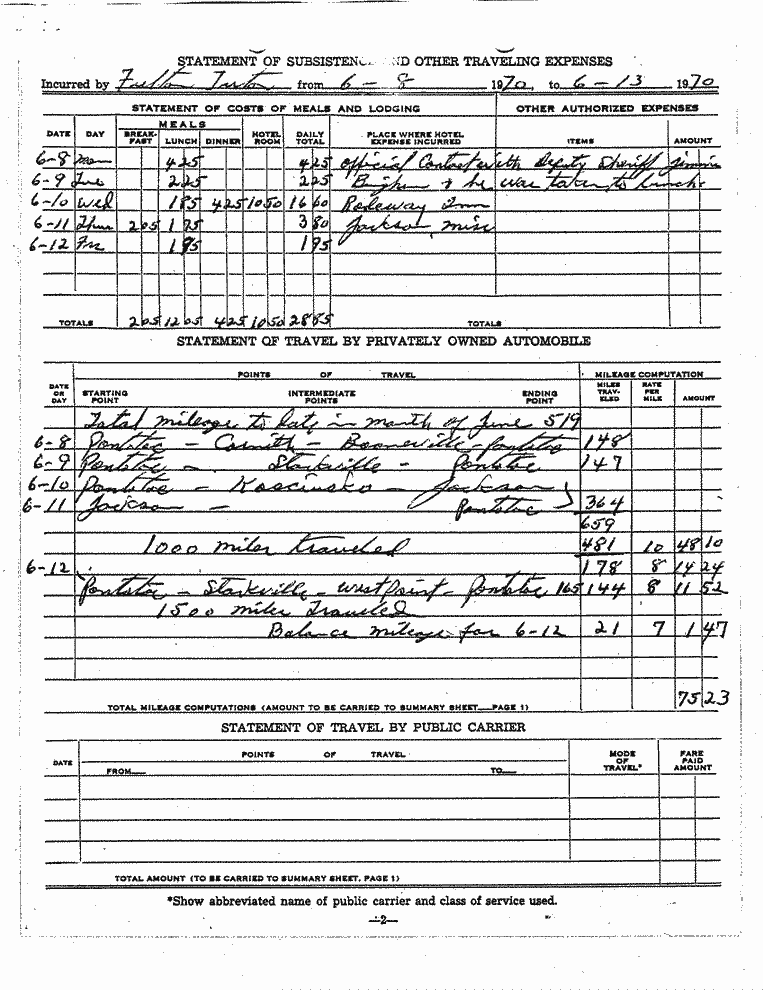 STATEMENT OF SUBSISTENCE AND OTHER TRAVELING EXPENSES
Incurred by Fulton from 6 - 8 1970, to 6 - 13 1970
STATEMENT OF COSTS OF MEALS AND LODGING OTHER AUTHORIZED EXPENSES
MEALS
DATE DAY BREAK-FAST LUNCH DINNER HOTEL ROOM DAILY TOTAL PLACE WHERE HOTEL EXPENSE INCURRED ITEMS AMOUNT
6-8 Mon 4 25 4 25 Official Contact with Deputy Sheriff Jimmie
6-9 Tue 2 25 2 25 & he was taken to lunch.
6-10 Wed 1 85 4 25 10 50 16 60 Rodeway Inn
6-11 Thur 2 05 1 75 3 80 Jackson, Miss
6-12 Fri 1 95 1 95
TOTALS 2 05 12 05 4 25 10 50 28 85 TOTALS
STATEMENT OF TRAVEL BY PRIVATELY OWNED AUTOMOBILE
POINTS OF TRAVEL MILEAGE COMPUTATION
DATE OR DAY STARTING POINT INTERMEDIATE POINTS ENDING POINT MILES TRAV-ELED RATE PER MILE AMOUNT
Total mileage to date in month of June 519
6-8 Pontotoc - Corinth - Booneville - Pontotoc 148
6-9 Pontotoc - Starkville - Pontotoc 147
6-10 Pontotoc - Kosciusko - Jackson
6-11 Jackson - Pontotoc 364
659
1000 miles traveled 481 10 48 10
6-12 178 8 14 24
Pontotoc - Starkville - West Point - Pontotoc 165 144 8 11 52
1500 miles Traveled
Balance mileage for 6-12 21 7 1 47
TOTAL MILEAGE COMPUTATIONS (AMOUNT TO BE CARRIED TO SUMMARY SHEET—PAGE 1) 75 23
STATEMENT OF TRAVEL BY PUBLIC CARRIER
DATE POINTS OF TRAVEL MODE OF TRAVEL* FARE PAID AMOUNT
FROM— TO—
TOTAL AMOUNT (TO BE CARRIED TO SUMMARY SHEET, PAGE 1)
*Show abbreviated name of public carrier and class of service used.
—2—